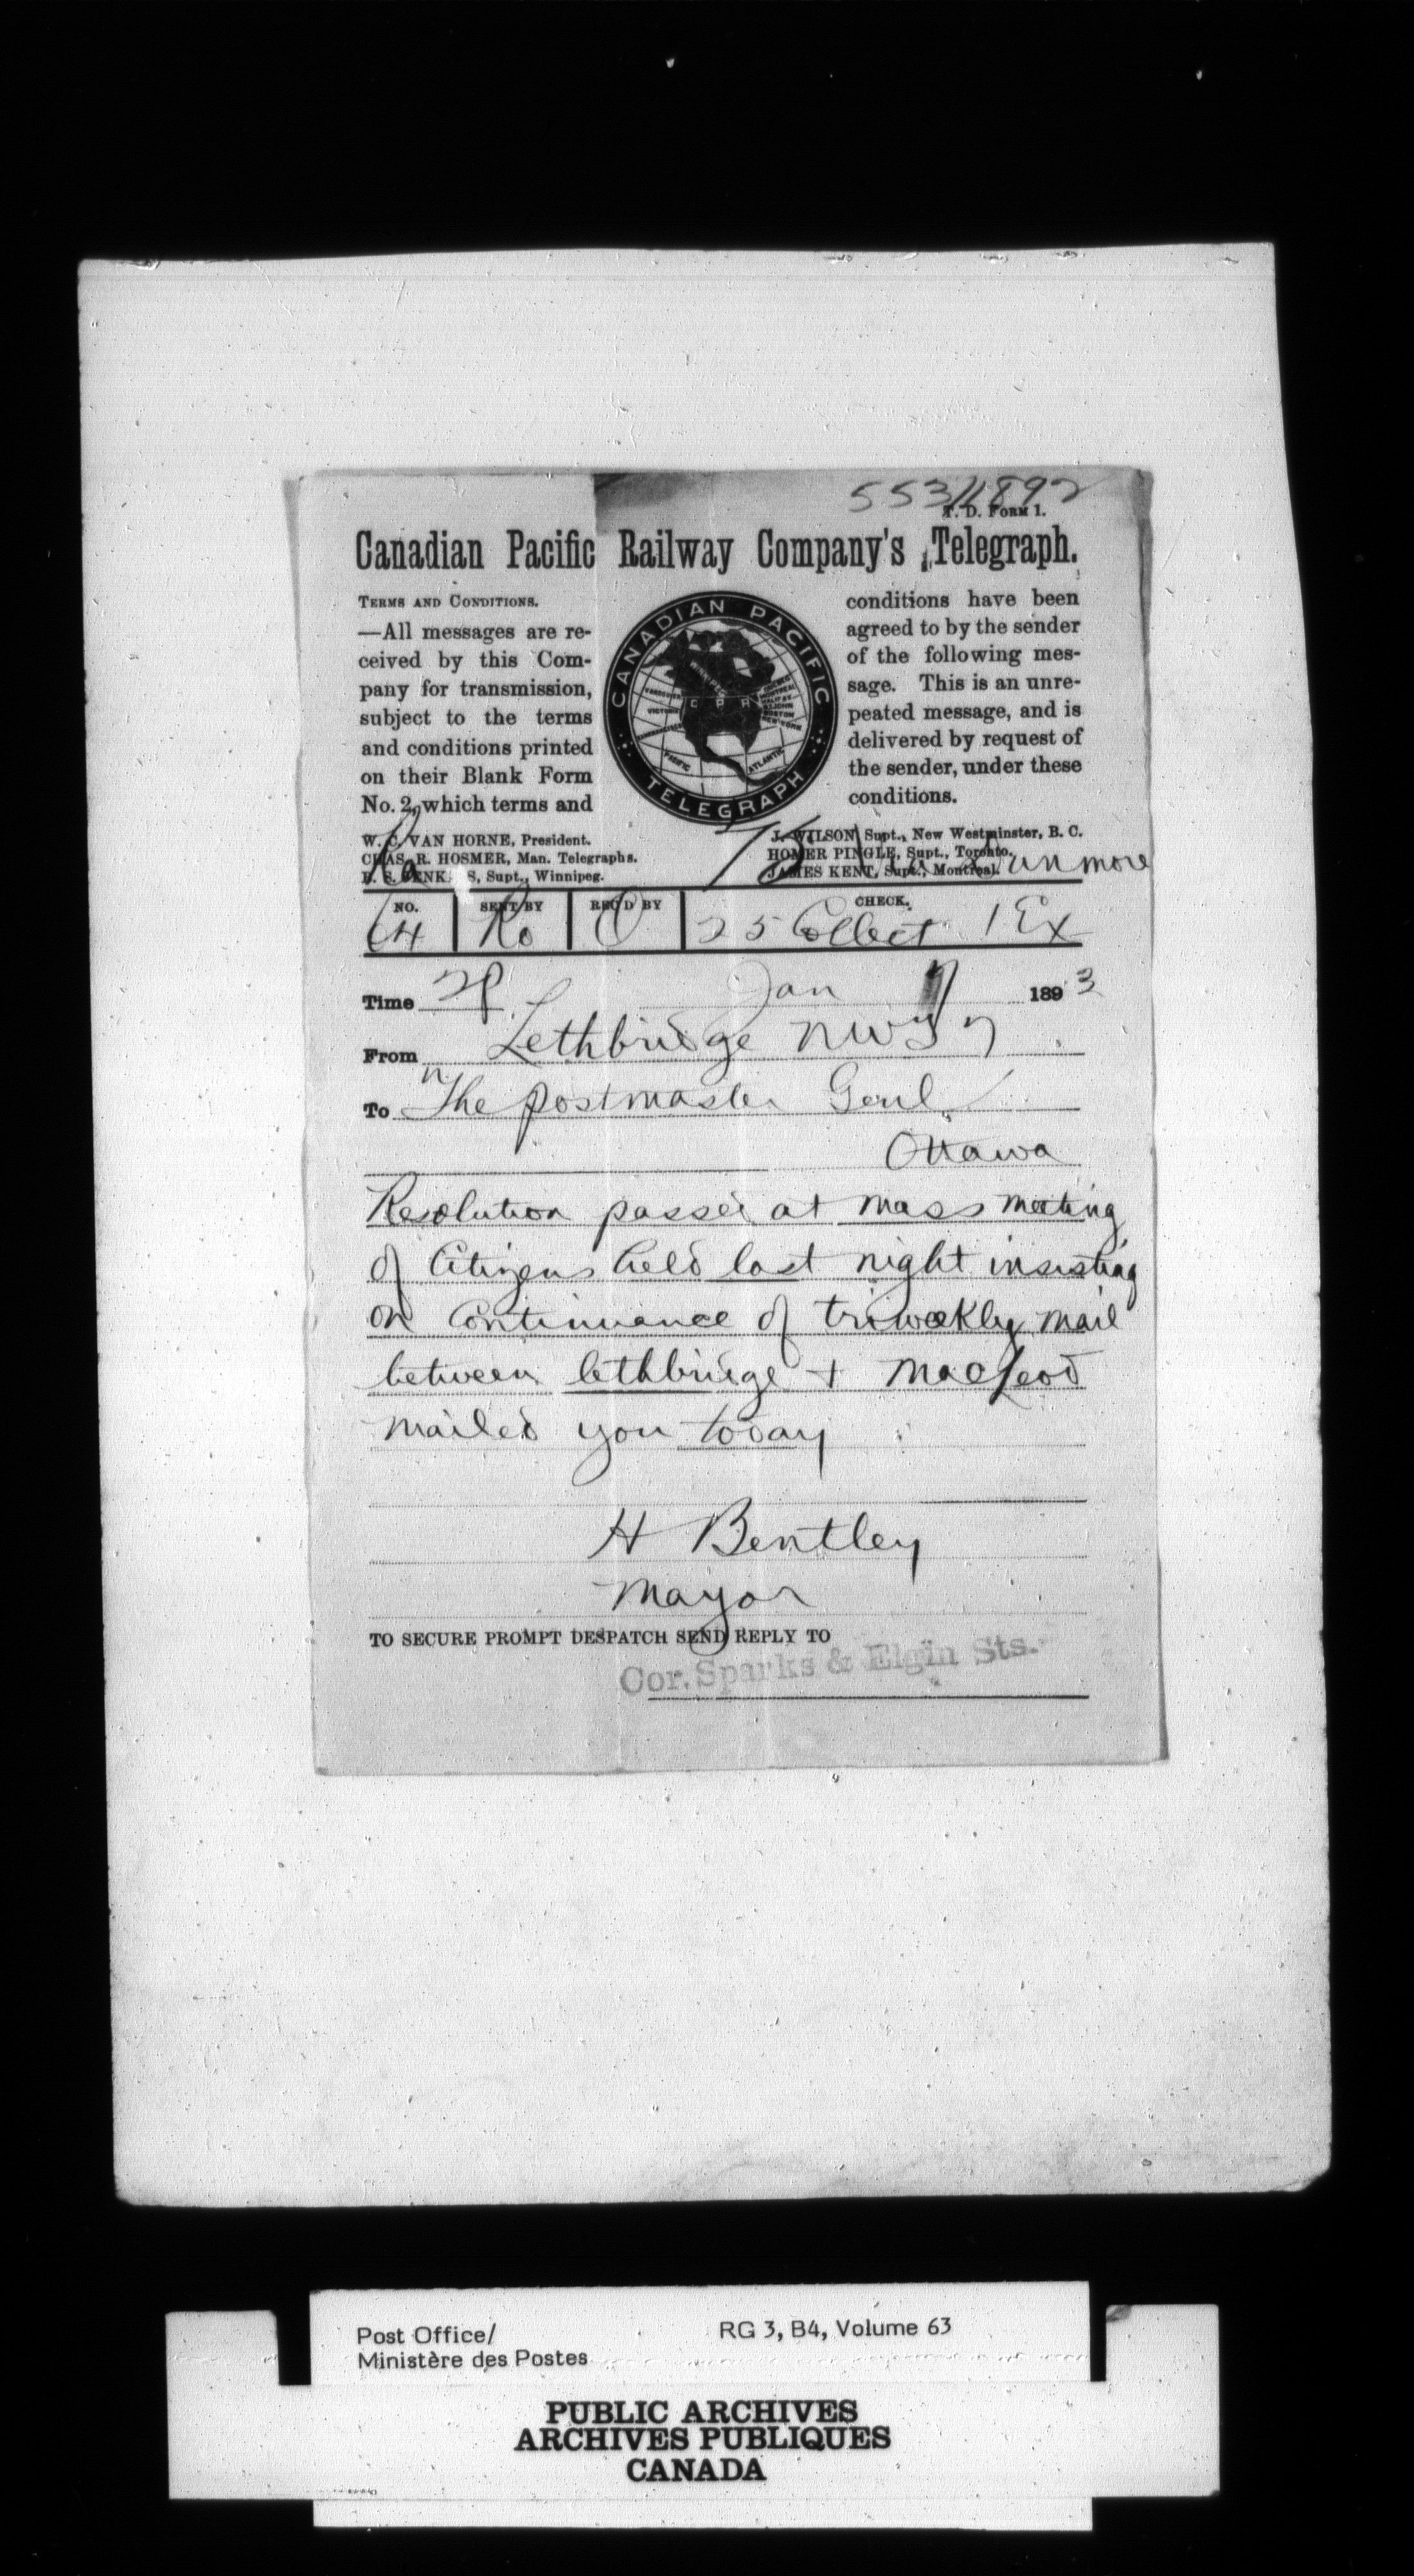 553/1892
T. D. FORM 1.
Canadian Pacific Railway Company's Telegraph.
TERMS AND CONDITIONS.
—All messages are re-
ceived by this Com-
pany for transmission,
subject to the terms
and conditions printed
on their Blank Form
No. 2, which terms and
CANADIAN PACIFIC
TELEGRAPH
WINNIPEG
VANCOUVER
VICTORIA
C P R
QUEBEC
MONTREAL
HALIFAX
ST JOHN
BOSTON
NEW YORK
PACIFIC
ATLANTIC
conditions have been
agreed to by the sender
of the following mes-
sage. This is an unre-
peated message, and is
delivered by request of
the sender, under these
conditions.
W. C. VAN HORNE, President.
CHAS. R. HOSMER, Man. Telegraphs.
S, Supt., Winnipeg.
J. WILSON, Supt., New Westminster, B. C.
HOMER PINGLE, Supt., Toronto.
JAMES KENT, Supt., Montreal.
75
NO. SENT BY REC'D BY CHECK.
64 Ro O 25 Collect 1 Ex
Time 2P Jan 7 1893
From Lethbridge NWT 7
To The Postmaster Genl
Ottawa
Resolution passed at mass meeting
of Citizens held last night insisting
on Continuance of triweekly mail
between lethbridge + MacLeod
mailed you today
H Bentley
Mayor
TO SECURE PROMPT DESPATCH SEND REPLY TO
Cor. Sparks & Elgin Sts.
Post Office/
Ministère des Postes
RG 3, B4, Volume 63
PUBLIC ARCHIVES
ARCHIVES PUBLIQUES
CANADA